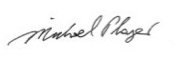 Michael Player